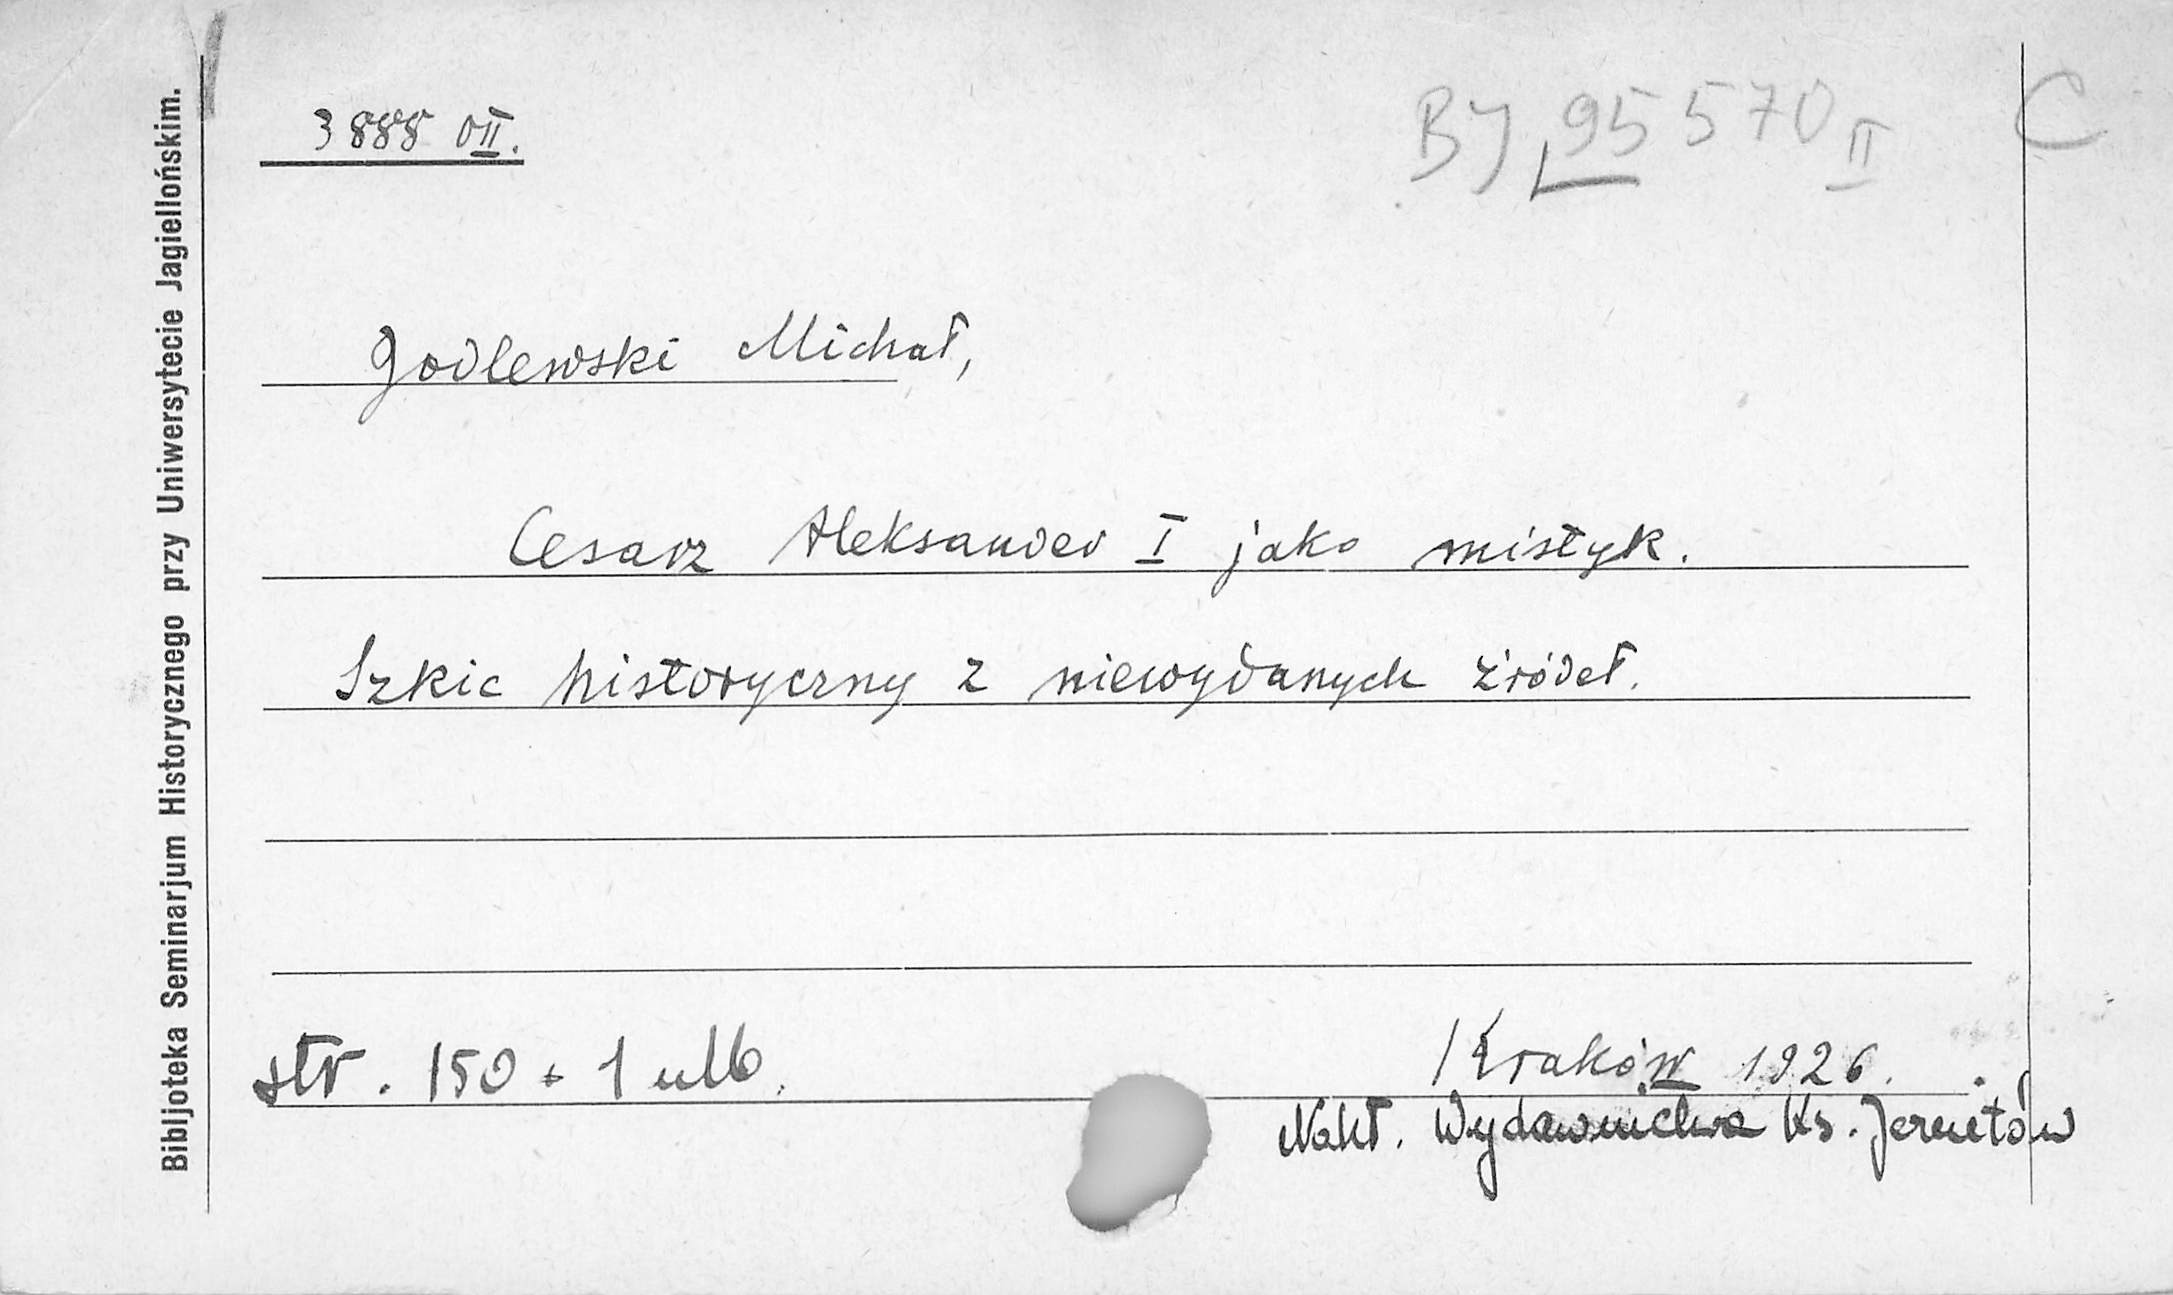 Bibljoteka Seminarjum Historycznego przy Uniwersytecie Jagiellońskim.
3888 OII.
BJ 95570 II
C
Godlewski Michał,
Cesarz Aleksander I jako mistyk.
Szkic historyczny z niewydanych źródeł.
str. 150 + 1 ulb.
Kraków 1926.
Nakł. Wydawnictwa Ks. Jezuitów